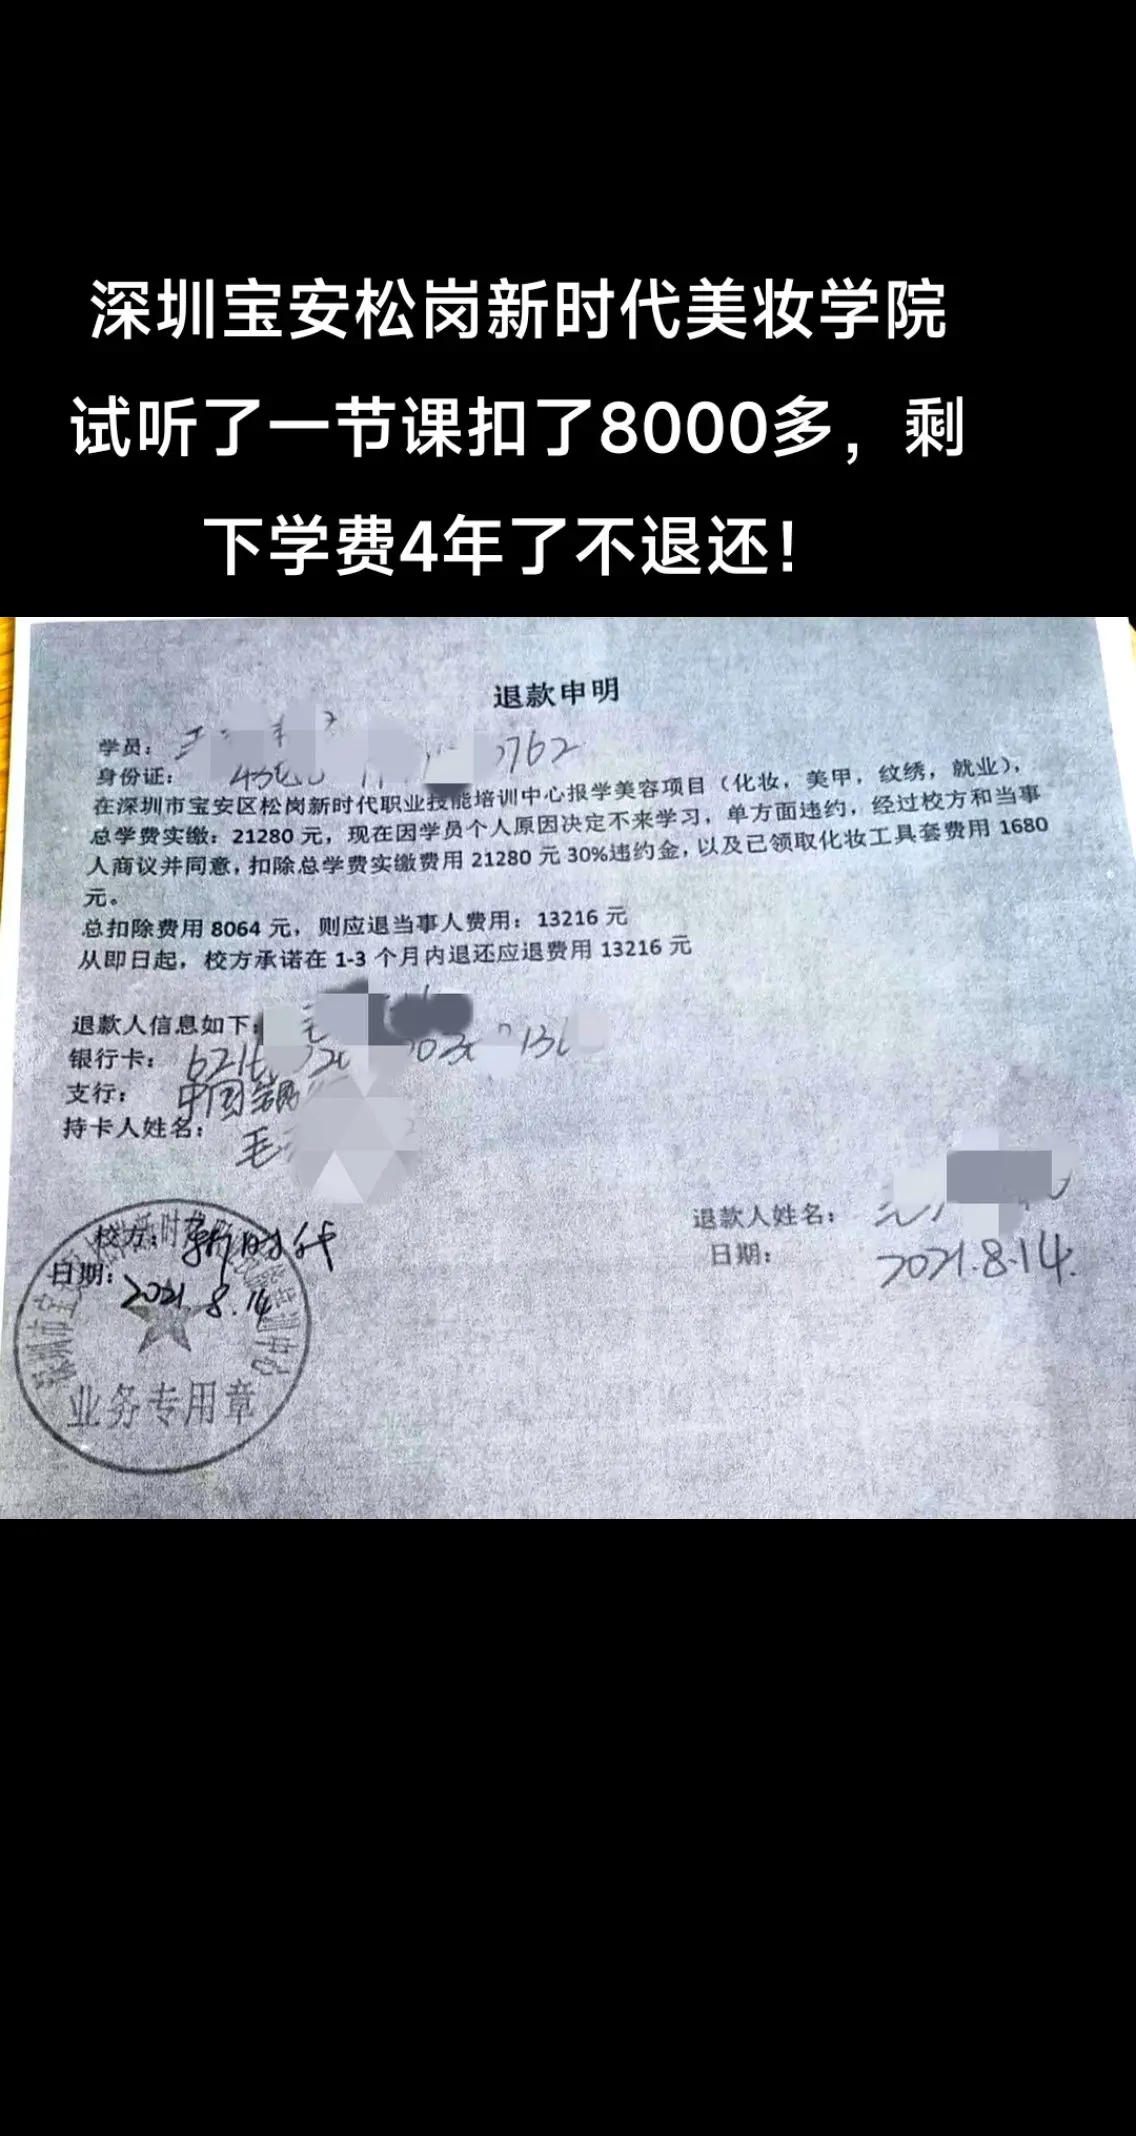 深圳宝安松岗新时代美妆学院
试听了一节课扣了8000多，剩
下学费4年了不退还！
退款申明
学员：
身份证： 0762
在深圳市宝安区松岗新时代职业技能培训中心报学美容项目（化妆，美甲，纹绣，就业），
总学费实缴：21280 元，现在因学员个人原因决定不来学习，单方面违约，经过校方和当事
人商议并同意，扣除总学费实缴费用 21280 元 30%违约金，以及已领取化妆工具套费用 1680
元。
总扣除费用 8064 元，则应退当事人费用：13216 元
从即日起，校方承诺在 1-3 个月内退还应退费用 13216 元
退款人信息如下：
银行卡：
支行： 中国
持卡人姓名：
毛
校方： 新时代
日期： 2021.8.14
退款人姓名：
日期： 2021.8.14.
业务专用章